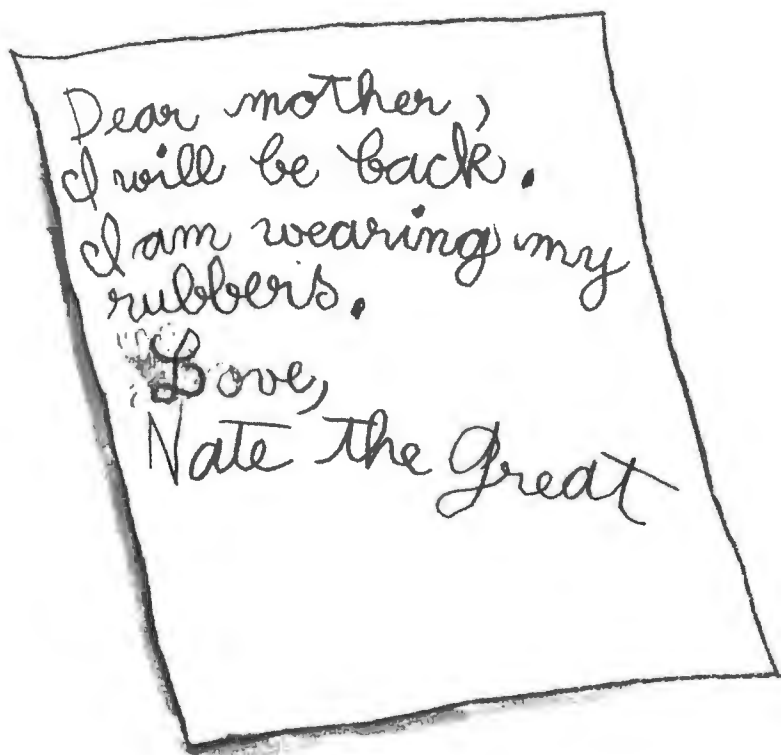 Dear mother,
I will be back.
I am wearing my
rubbers.
Love,
Nate the Great